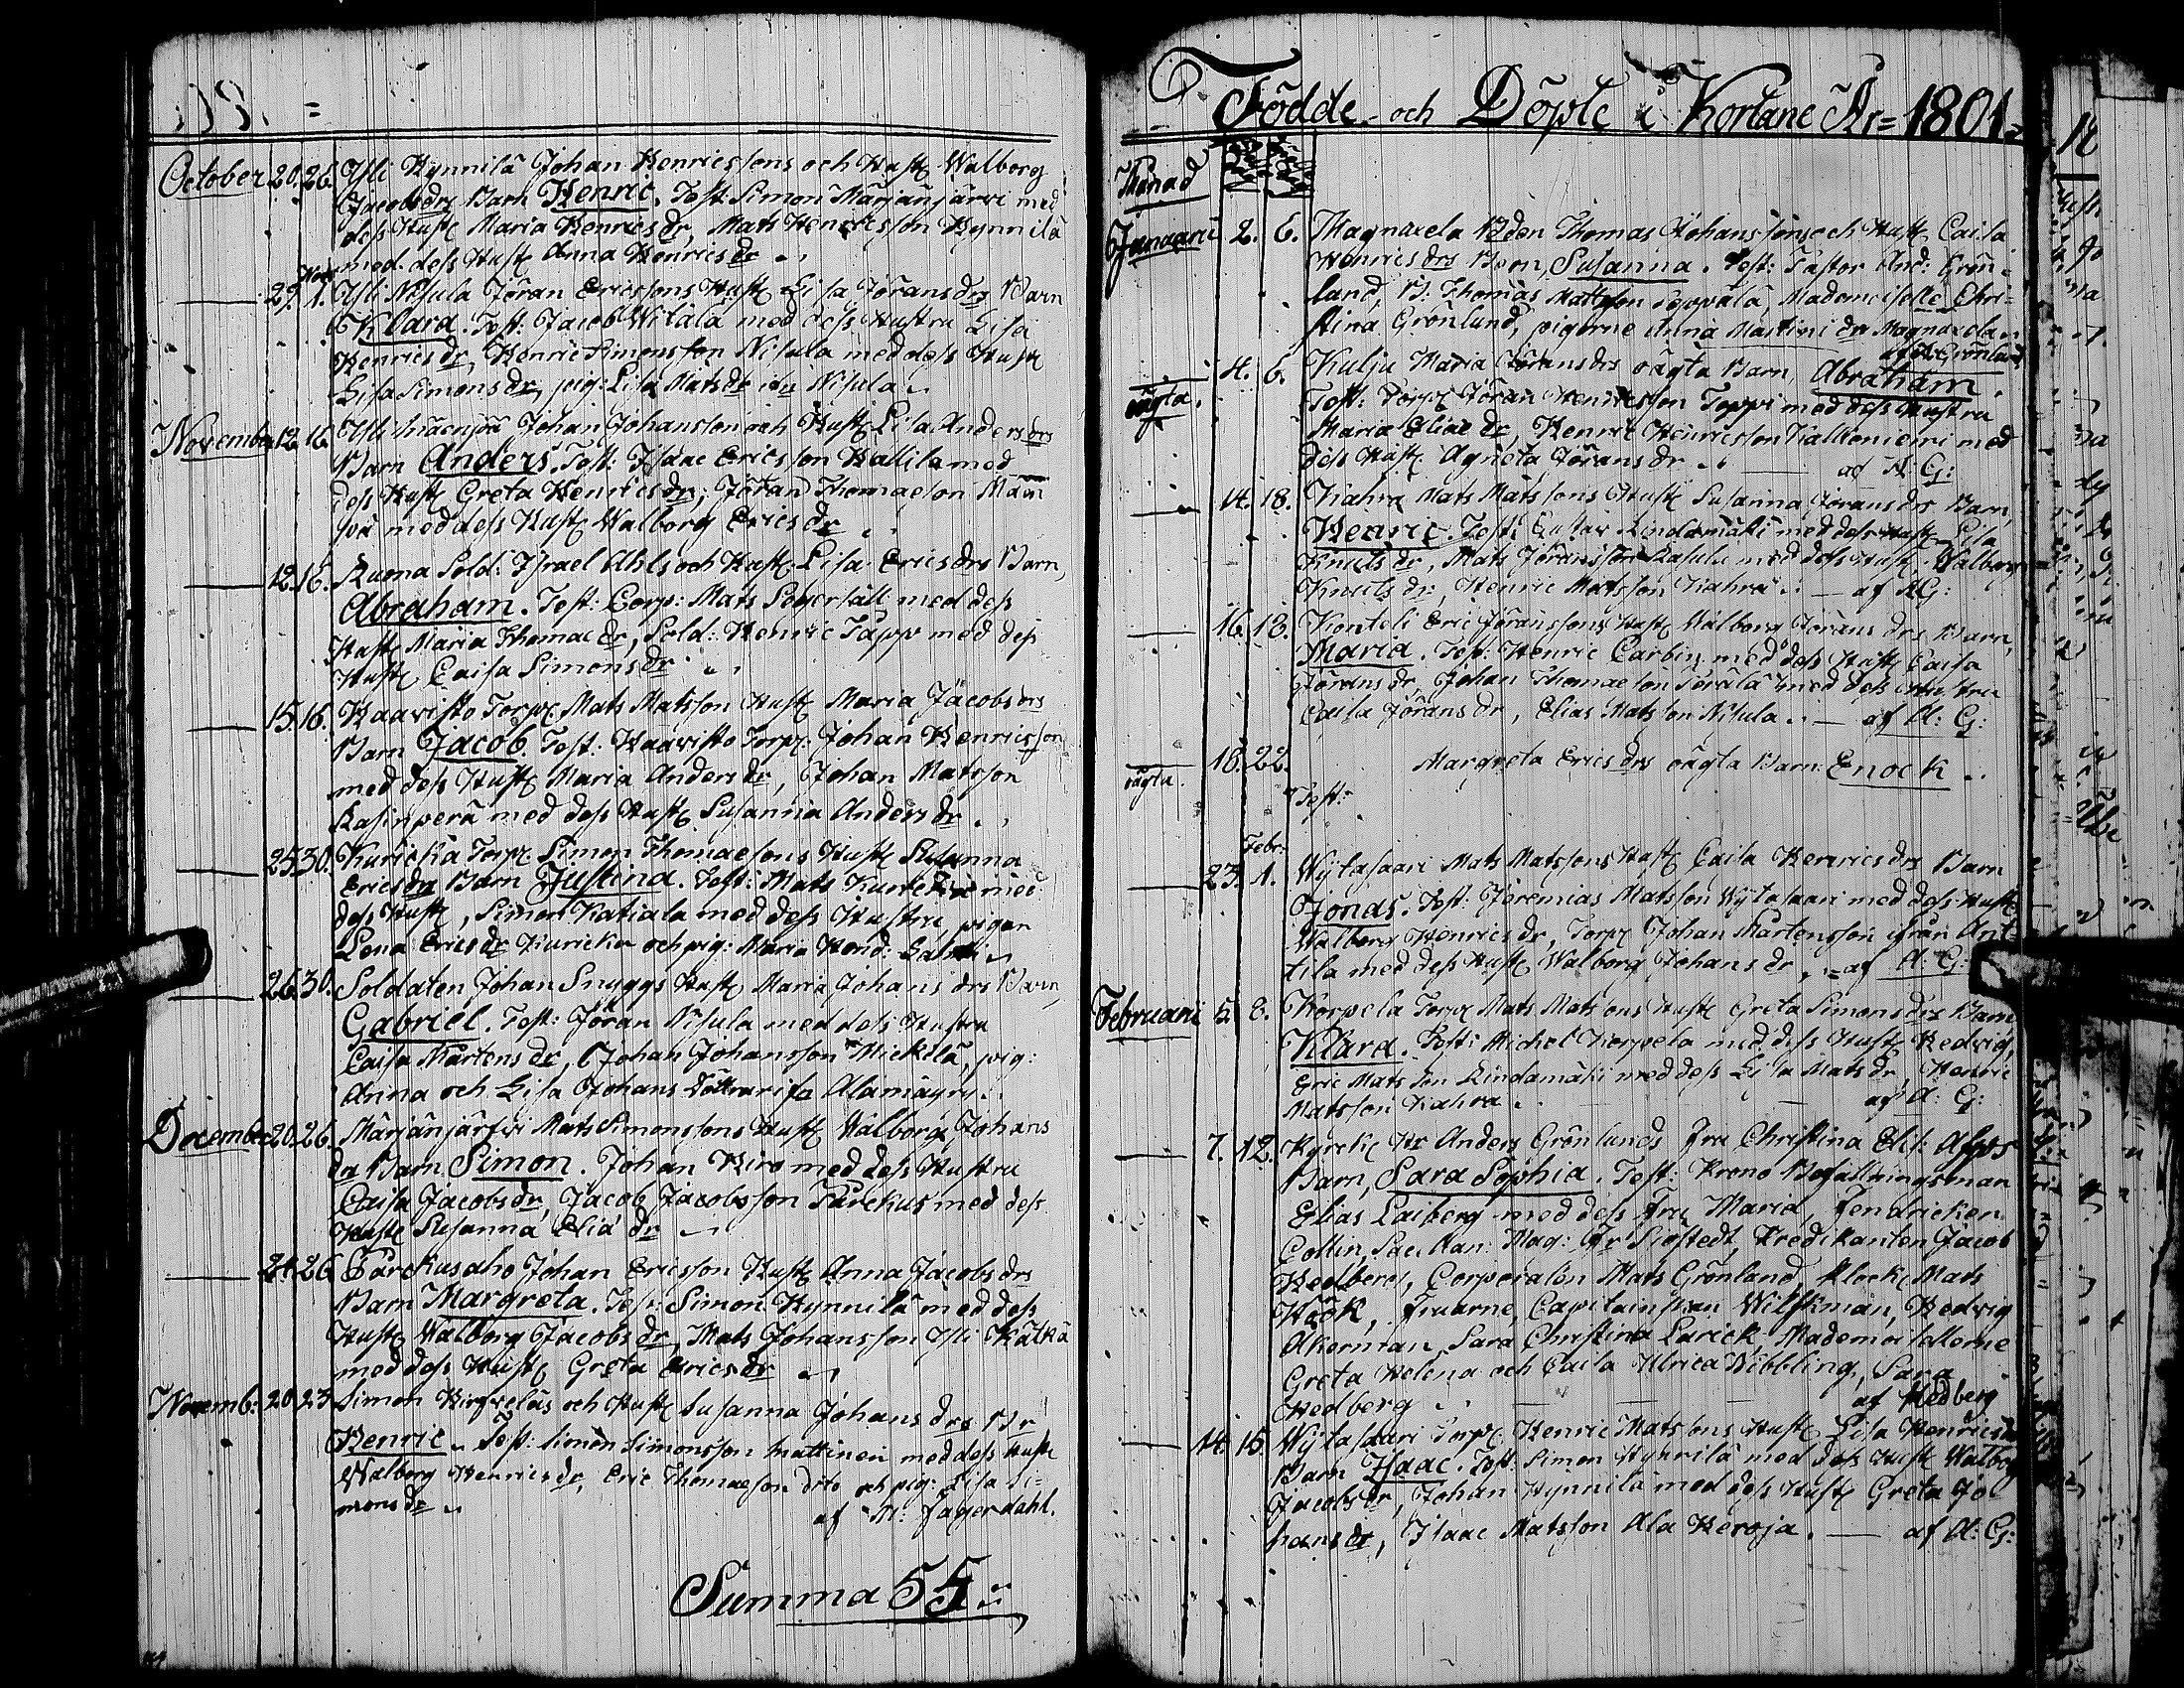 October 20. 26. Ysli Hynnilä Johan Henricssons och Hust Walborg
Jacobsdrs Barn Henric. Test: Simon Märjänjärvi med
dess Hust Maria Henricsdr, Mats Henricsson Hynnilä
med dess Hust Anna Henricsdr
Nov:
29. 1. Ysli Nisula Jöran Ericssons Hust Lisa Jöransdrs Barn
Klara. Test: Jacob Witala med dess Hustru Lisa
Henricsdr, Henric Simonsson Nisula med dess Hust
Lisa Simonsdr, pig: Lisa Matsdr Nisula
November 12. 16. Ysli Johan Johansson och Hust Lisa Andersdrs
Barn Anders. Test: Isaac Ericsson Kallila med
dess Hust Greta Henricsdr, Jöran Thomaeson
med dess Hust Walborg Ericsdr
12. 16. Ruona Sold: Israel Ahls och Hust Lisa Ericsdrs Barn,
Abraham. Test: Corp: Mats med dess
Hust Maria Thomaedr, Sold: Henric Tapp med dess
Hust Caisa Simonsdr
15. 16. Haavisto Torp Mats Matsson Hust Maria Jacobsdrs
Barn Jacob. Test: Haavisto Torp: Johan Henricsson
med dess Hust Maria Andersdr, Johan Matsson
Rasinperä med dess Hust Susanna Andersdr.
25. 30. Kuricka Torp Simon Thomaesons Hust Susanna
Ericsdrs Barn Justina. Test: Mats Kuricka med
dess Hust, Simon Katiala med dess Hustru, pigan
Lena Ericsdr Kuricka och pig: Maria
26. 30. Soldaten Johan Snyggs Hust Maria Johansdrs Barn
Gabriel. Test: Jöran Nisula med dess Hustru
Caisa Mårtensdr, Johan Johansson Mickilä, pig:
Anna och Lisa Johans Döttrar ifrå Alamäyry.
December 20. 26. Märjänjärfvi Mats Simonssons Hust Walborg Johans
dr Barn Simon. Johan Hiro med dess Hustru
Caisa Jacobsdr, Jacob Jacobsson Särckus med dess
Hust Susanna Elia dr
24. 26. Särckusaho Johan Ericsson Hust Anna Jacobsdrs
Barn Margreta. Test: Simon Hynnilä med dess
Hust Walborg Jacobsdr, Mats Johansson Ysli Kälkä
med dess Hust Greta Ericsdr
Novemb: 20. 23. Simon och Hust Susanna Johansdrs Br
Henric. Test: Simon Simonsson Mattinen med dess Hust
Walborg Henricsdr, Eric Thomaeson dito och pig: Lisa Si-
monsdr af M: Fagerdahl.
Summa 55
Födde och Döpte i Kortäne År 1801
Månad
Januarii 2. 6. Magnaxela Bden Thomas Johanssons och Hust Caisa
Henricsdrs Barn, Susanna. Test: Pastor And: Grön-
lund, B: Thomas Mattsson Seppälä, Mademoiselle Chri-
stina Grönlund, pigorne Anna Martini dr Magnaxela
af A: Grönlund
oägta. 4. 6. Kulju Maria Göransdrs oägta Barn, Abraham
Test: Torp Jöran Henricsson Toppi med dess Hustru
Maria Eliae dr, Henric Henricsson Kalkoniemi med
dess Hust Agneta Jöransdr af A: G:
14. 18. Kahra Mats Matssons Hust Susanna Joransdrs Barn,
Henric. Test: Gustav Rindamäki med dess Hust Lisa
Knutsdr, Mats Jöransson Kasula med dess Hust Walborg
Knutsdr, Henric Matsson Kahra — af AG:
16. 18. Konteli Eric Jöranssons Hust Walborg Jörans drs Barn,
Maria. Test: Henric Carbin med dess Hust Caisa
Jöransdr, Johan Thomaeson Sorala med dess Hustru
Caisa Jöransdr, Elias Matsson Nisula — af A: G:
oägta. 18. 22. Margreta Ericsdrs oägta Barn: Enock
Test:
Febr:
23. 1. Wytasaari Mats Matssons Hust Caisa Henricsdrs Barn
Jonas. Test: Jeremias Matsson Wytasaari med dess Hust
Walborg Henricsdr, Torp Johan Mårtensson ifrån Ant-
tila med dess Hust Walborg Johansdr, af A: G:
Februarii 5. 8. Korpela Torp Mats Matssons Hust Greta Simonsdrs Barn
Klara. Test: Michel Korpela med dess Hust Hedvig,
Eric Matsson Rindamäki med dess Lisa Matsdr, Henric
Matsson Kahra af A: G:
7. 12. Kyrck Hr Anders Grönlunds fru Christina Elis: Alfors
Barn, Sara Sophia. Test: Krono Befallningsman
Elias Caiberg med dess fru Maria, Fendricken
Collin, Sac: Man: Mag: Fr Siöstedt, Predikanten Jacob
Hedberg, Corporalen Mats Grönland, Klock Mats
Höök, Fruarne, Capitainskan Wilskman, Hedvig
Åkerman, Sara Christina Larick, Mademoisellerne
Greta Helena och Caisa Ulrica Wibbling, Sara
Hedberg af Hedberg
14. 15. Wytasaari Torp Henric Matssons Hust Lisa Henricsdr
Barn Isaac. Test: Simon Hynnilä med dess Hust Walborg
Jacobsdr, Johan Hynnilä med dess Hust Greta Jo-
hansdr, Isaac Matsson Ala Heroja. — af A: G: